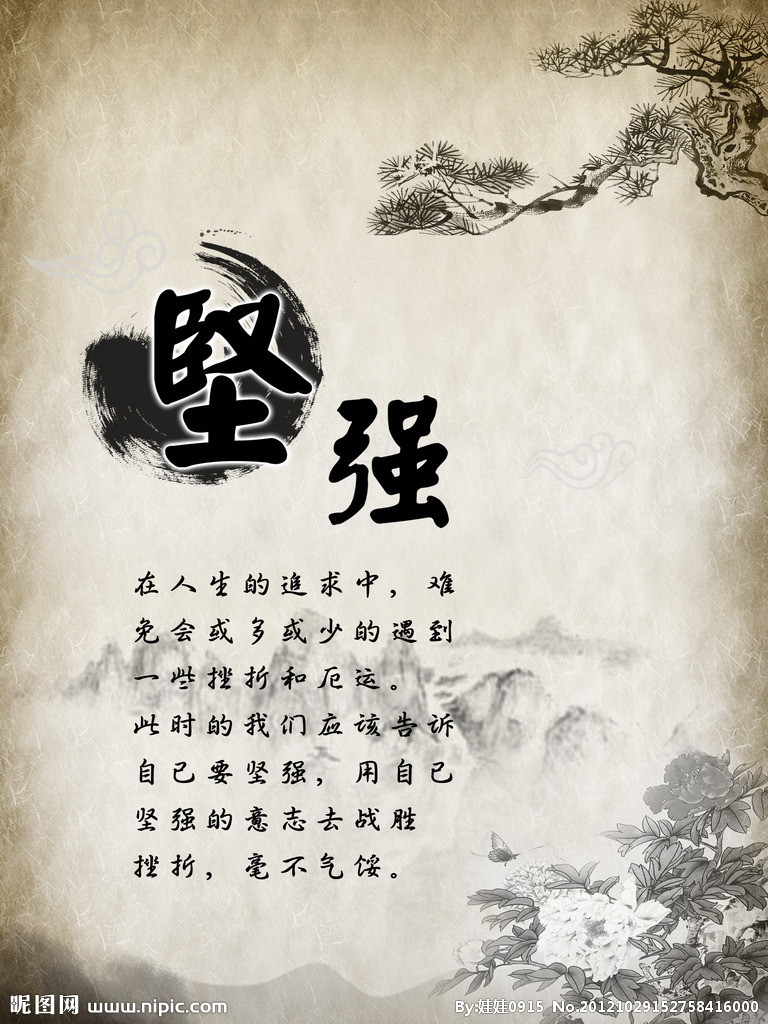 堅强
在人生的追求中，难
免会或多或少的遇到
一些挫折和厄运。
此时的我们应该告诉
自已要坚强，用自已
坚强的意志去战胜
挫折，毫不气馁。
昵图网 www.nipic.com
By:娃娃0915 No.20121029152758416000